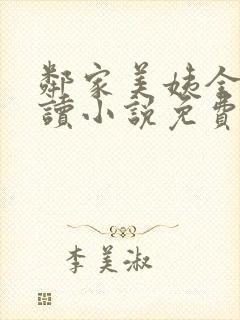 鄰家美姨全
讀小說免費
李美淑